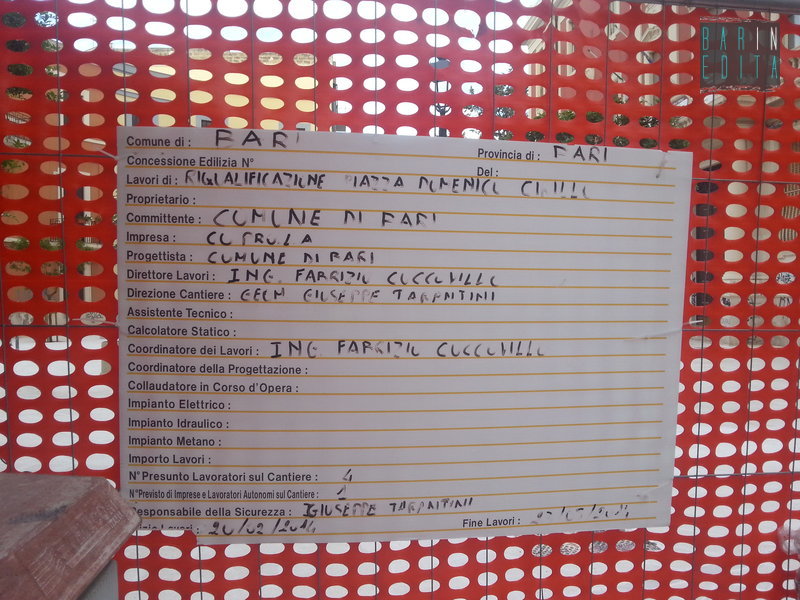 BARIN
EDITA
Comune di : BARI Provincia di : BARI
Concessione Edilizia N° Del :
Lavori di : RIQUALIFICAZIONE PIAZZA DOMENICO CIRILLO
Proprietario :
Committente : COMUNE DI BARI
Impresa :
Progettista : COMUNE DI BARI
Direttore Lavori : ING. FABRIZIO CUCCOVILLO
Direzione Cantiere : GEOM GIUSEPPE TARENTINI
Assistente Tecnico :
Calcolatore Statico :
Coordinatore dei Lavori : ING. FABRIZIO CUCCOVILLO
Coordinatore della Progettazione :
Collaudatore in Corso d'Opera :
Impianto Elettrico :
Impianto Idraulico :
Impianto Metano :
Importo Lavori :
N° Presunto Lavoratori sul Cantiere : 4
N° Previsto di Imprese e Lavoratori Autonomi sul Cantiere : 1
Responsabile della Sicurezza : GIUSEPPE TARENTINI
Inizio Lavori : 20/02/2014 Fine Lavori :